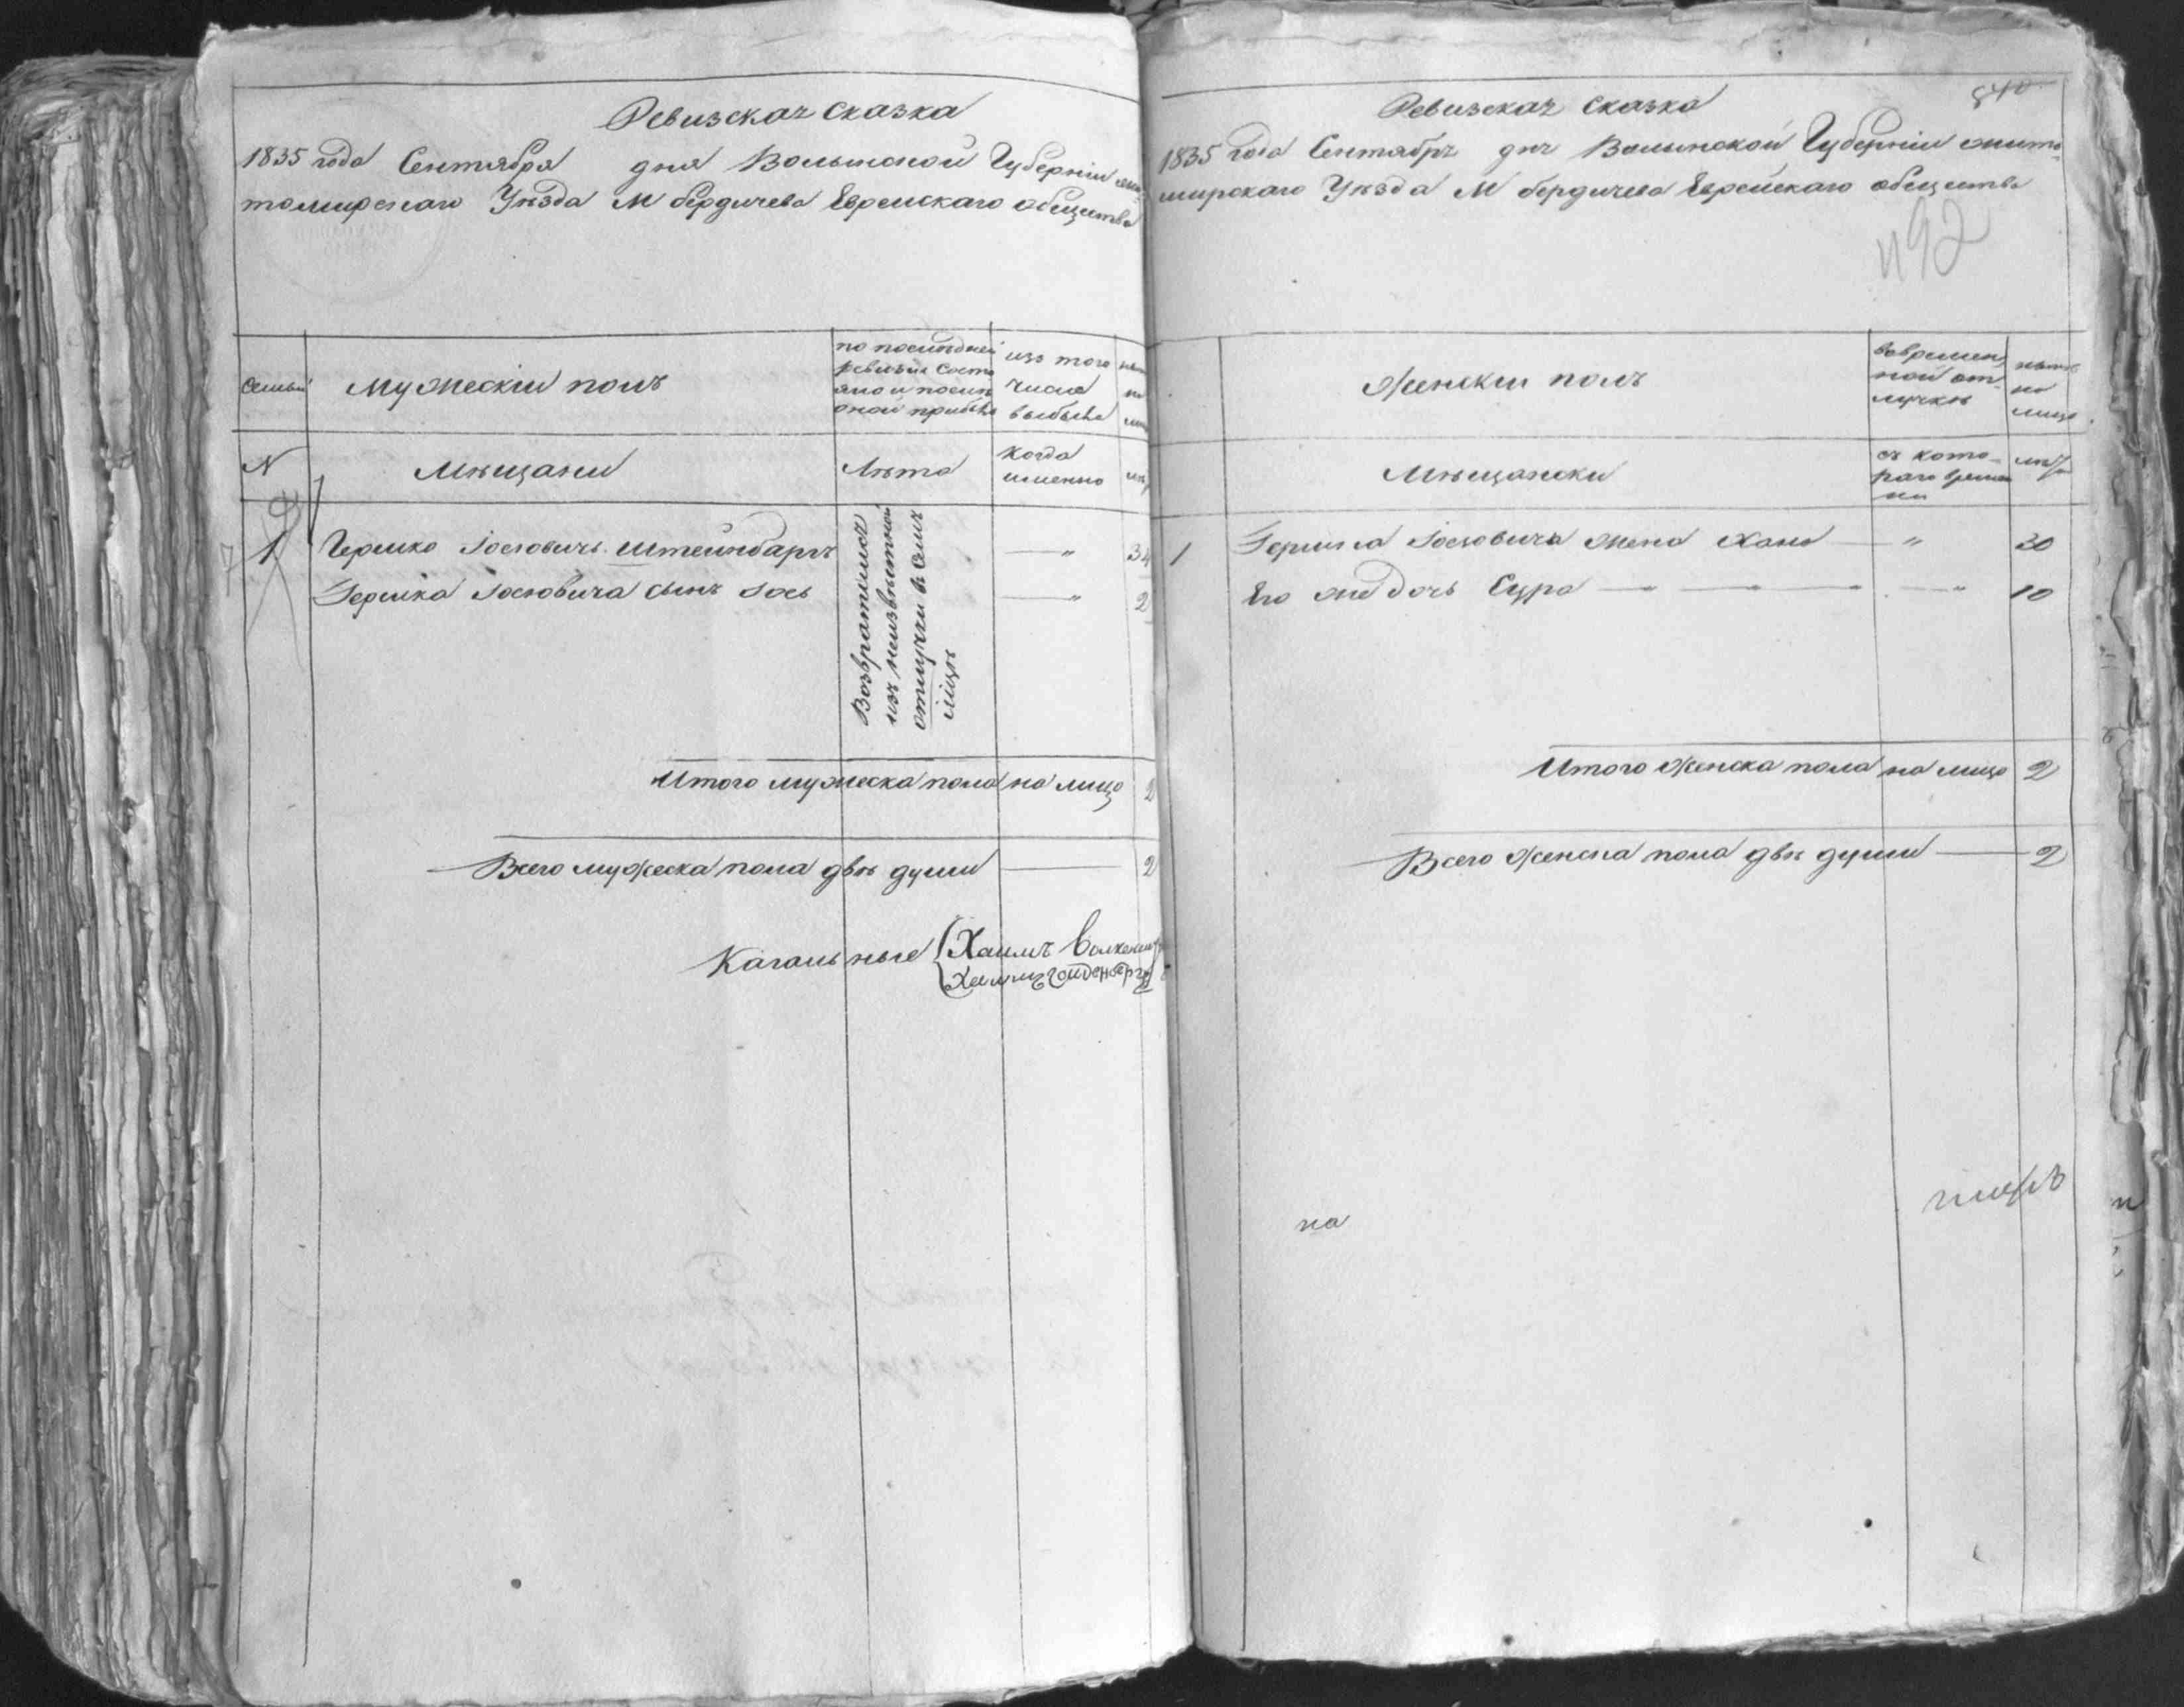 Ревизская сказка
1835 года Сентября дня Волынской Губерніи жи-
томирскаго Уѣзда М бердичева Еврейскаго общества
семьи
Мужескій полъ
по последней
ревизіи состо
яло и после
оной прибыло
изъ того
числа
выбыло
N
Мѣщани
Лѣта
когда
именно
1 Гершко Іосіовичъ Штейнбаргъ — „ 34
Гершка Іосіовича сынъ Іось — „ 2
Возвратился
изъ неизвестной
отлучки въ семъ
Итого мужеска пола на лицо 2
Всего мужеска пола двѣ души — 2
Кагальные
Хаимъ
Хаимъ
840
Ревизская сказка
1835 года Сентября дня Волынской Губерніи жито-
мирскаго Уѣзда М бердичева Еврейскаго общества
92
Женскій полъ
вовремен
ной от-
лучкѣ
нынѣ
на
лицо
Мѣщански
съ кото-
раго време
ни
лѣта
1 Гершка Іосіовича жена Хана — „ 30
Его же дочь Сура — „ 10
Итого женска пола на лицо 2
Всего женска пола двѣ души — 2
на